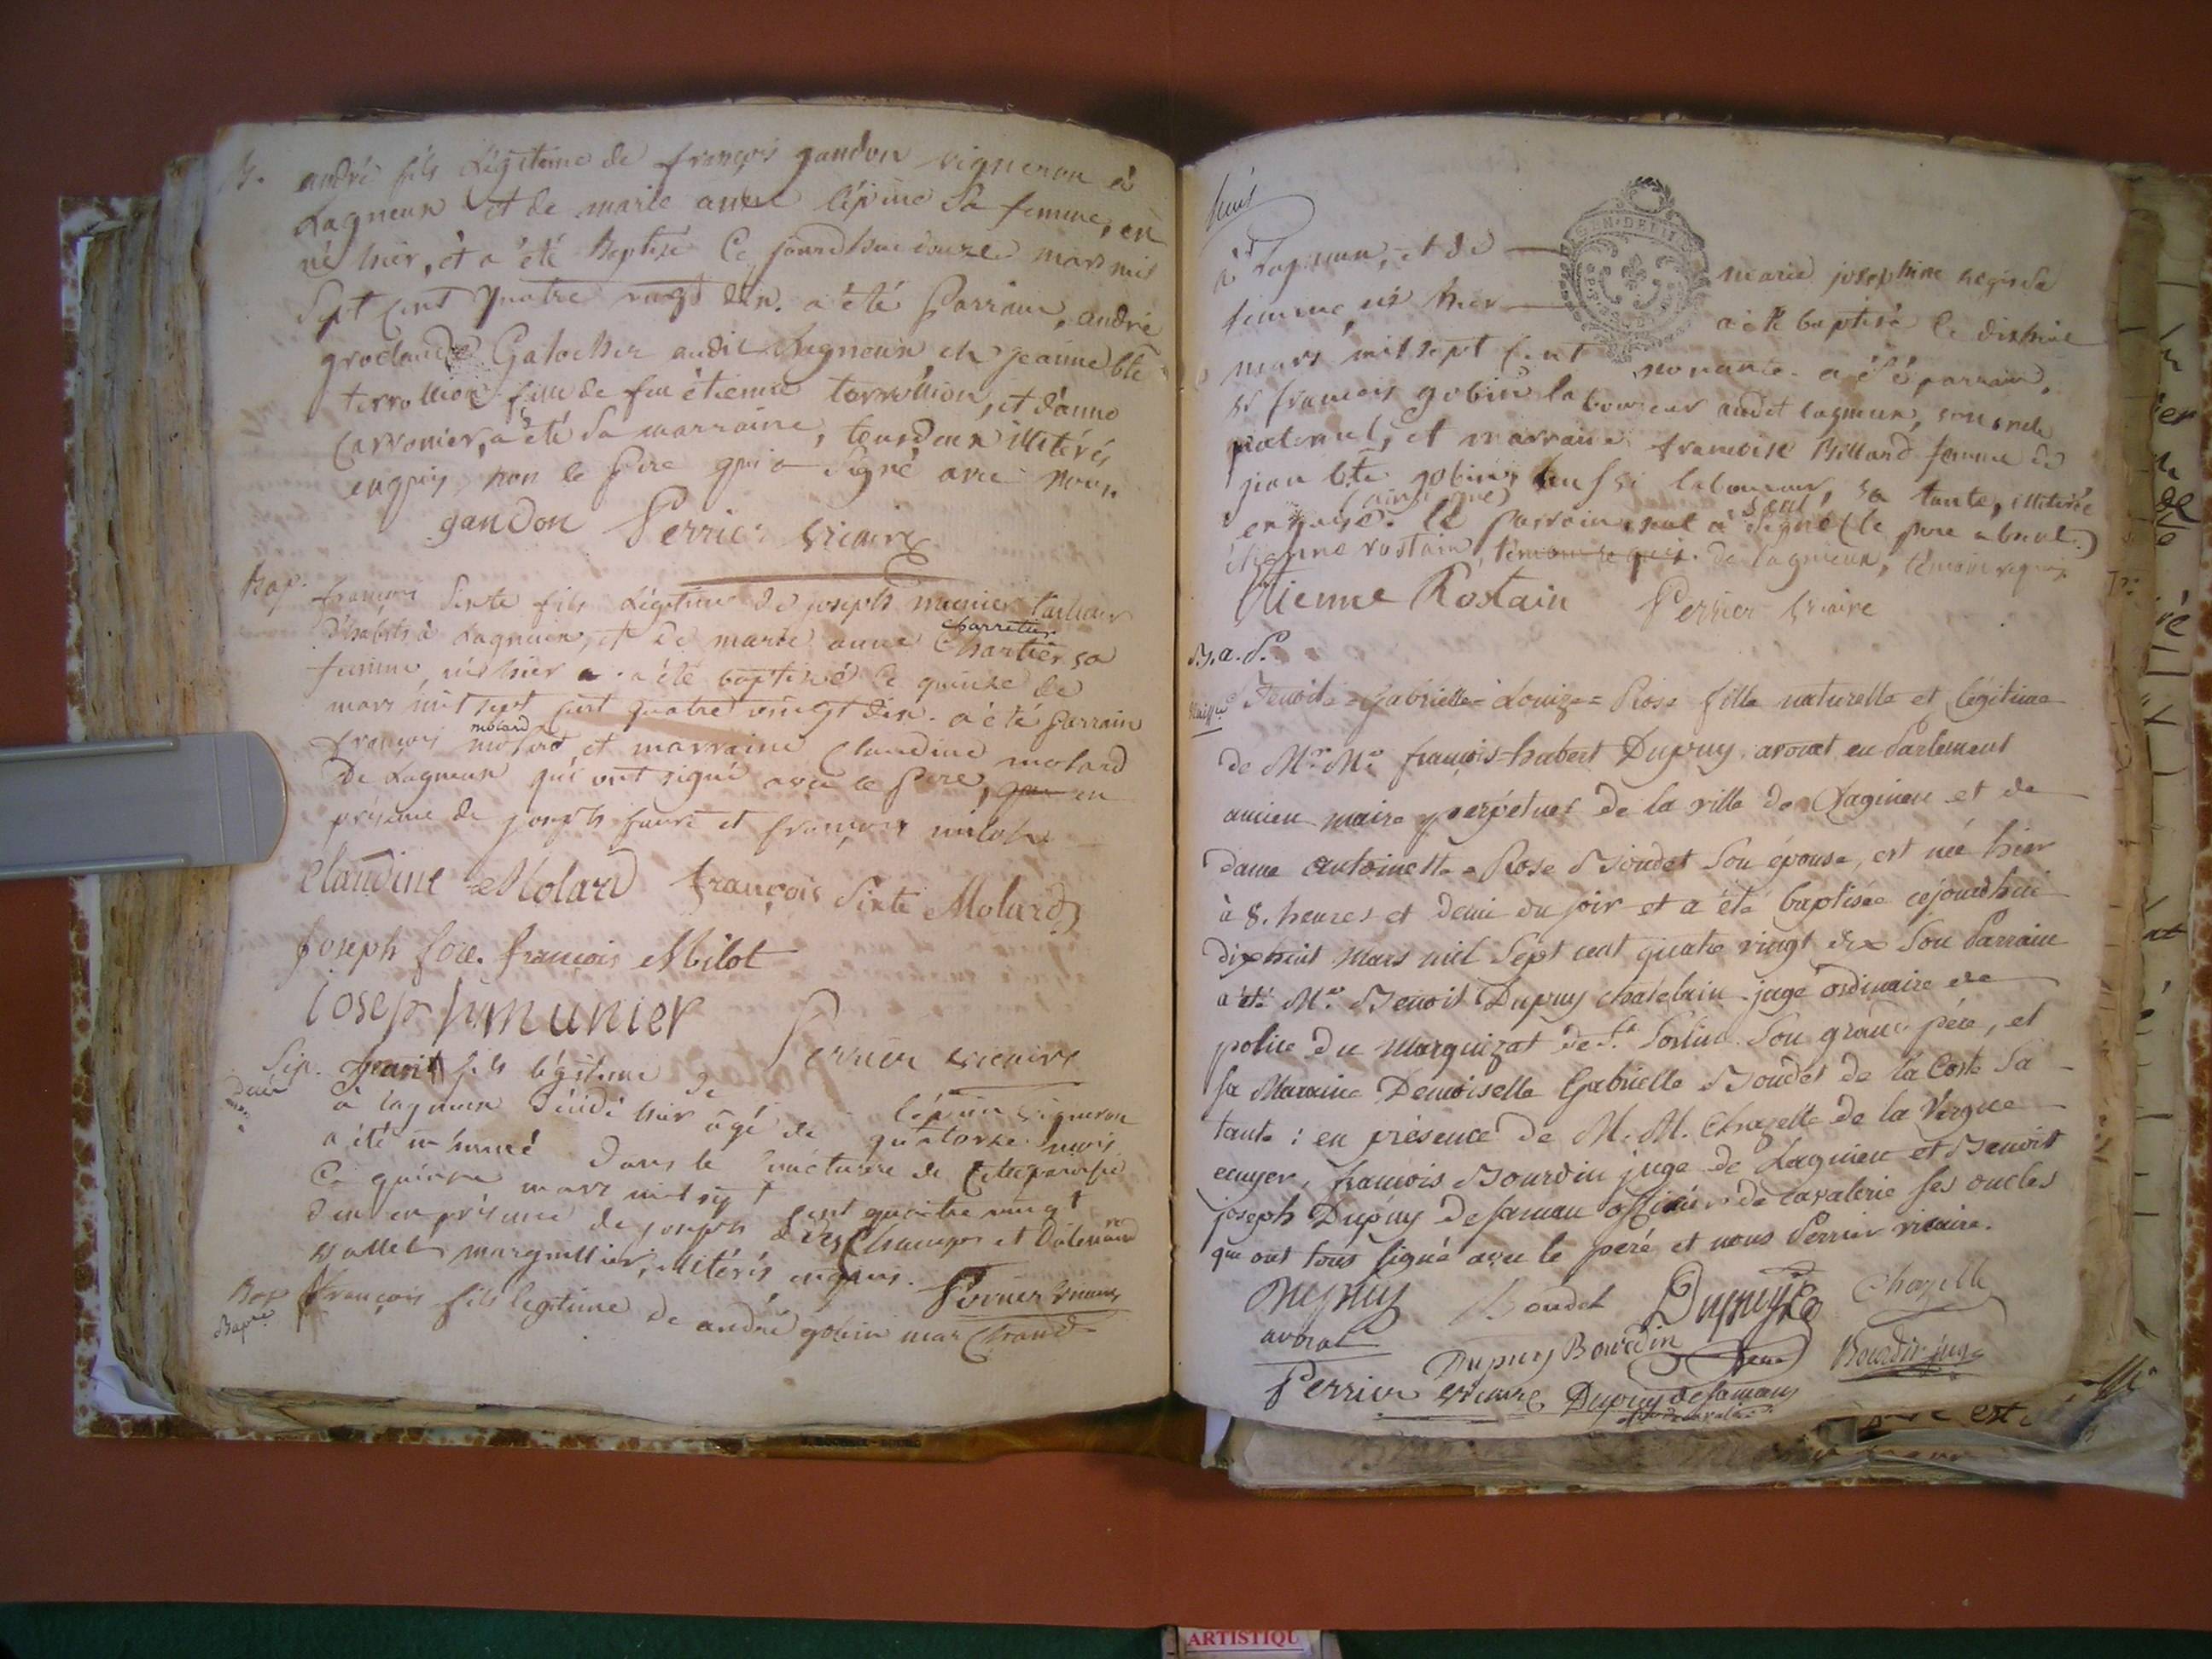 B. andré fils Légitime de françois gandon vigneron à
Lagneux et de marie anne l'épine sa femme, est
né hier, et a été Baptisé Ce jourdhui douze mars mil
Sept Cent Quatre vingt dix. a été Parrain, andré
groclaude Galocher audit Lagneux, et jeanne bte
terrollion fille de feu étienne terrollion, et d'anne
Carronier, a été sa marraine, tous deux illitérés
enquis, non le Père qui a signé avec nous
gandon Perrier vicaire
Bap. françois Sixte fils Légitime de joseph munier tailleur
d'habits à Lagneux, et de marie anne Chartier sa
charretier
femme, né hier a été baptisé le quinze de
mars mil sept cent quatre vingt dix. a été parrain
françois molard et marraine Claudine molard
molard
De Lagneux qui ont signé avec le père, en
présence de joseph faure et françois milot
Claudine Molard françois Sixte Molard
joseph fore. françois Milot
ioseph munier
Perrier vicaire
Sép. fils légitime de l'épine vigneron
à lagneux décédé hier âgé de quatorze mois
a été inhumé dans le cimetière de cette paroisse
Ce quinze mars mil sept cent quatre vingt
dix en présence de joseph Deschamps et
vallet marguillier, illitérés enquis. Perrier vicaire
Bap françois fils légitime de andré gobin marchand
Bapme
huit
à Lagneux, et de marie josephine regis sa
femme, né hier a été baptisé le dixhuit
mars mil sept cent nonante. a été parrain,
sr françois gobin laboureur audit lagneux, son oncle
paternel, et marraine francoise Billand femme de
jean bte gobin, aussi laboureur, sa tante, illitérée
enquise. le parrain seul a signé (le père absent.)
(ainsi que) seul
étienne rostain, de lagneux, témoin requis
Etienne Rostain Perrier vicaire
B. a. P.
Benoite = Gabrielle = Louize = Rose fille naturelle et légitime
de Mr. Me. françois-hubert Dupuy. avocat en Parlement
ancien maire perpétuel de la ville de Lagnieu et de
dame Antoinette = Rose Boudet son épouse, est née hier
à 8. heures et demi du soir et a été baptisée cejourdhui
dixhuit mars mil Sept cent quatre vingt dix Son Parrain
a été Me. Benoit Dupuy chatelain juge ordinaire de
police du Marquizat de St. Sorlin. Son grand père, et
Sa Maraine Demoiselle Gabrielle Boudet de la Coste Sa
tante : en présence de M. M. Chazelle de la Vergne
ecuyer, francois Bourdin juge de Lagnieu et Benoit
joseph Dupuy defamans officier de cavalerie ses oncles
qui ont tous signé avec le peré et nous Perrier vicaire.
Dupuy Boudet Dupuy Chazelle
avocat
Dupuy Bourdin Bourdin juge
Perrier vicaire Dupuy defamans
ARTISTIQU